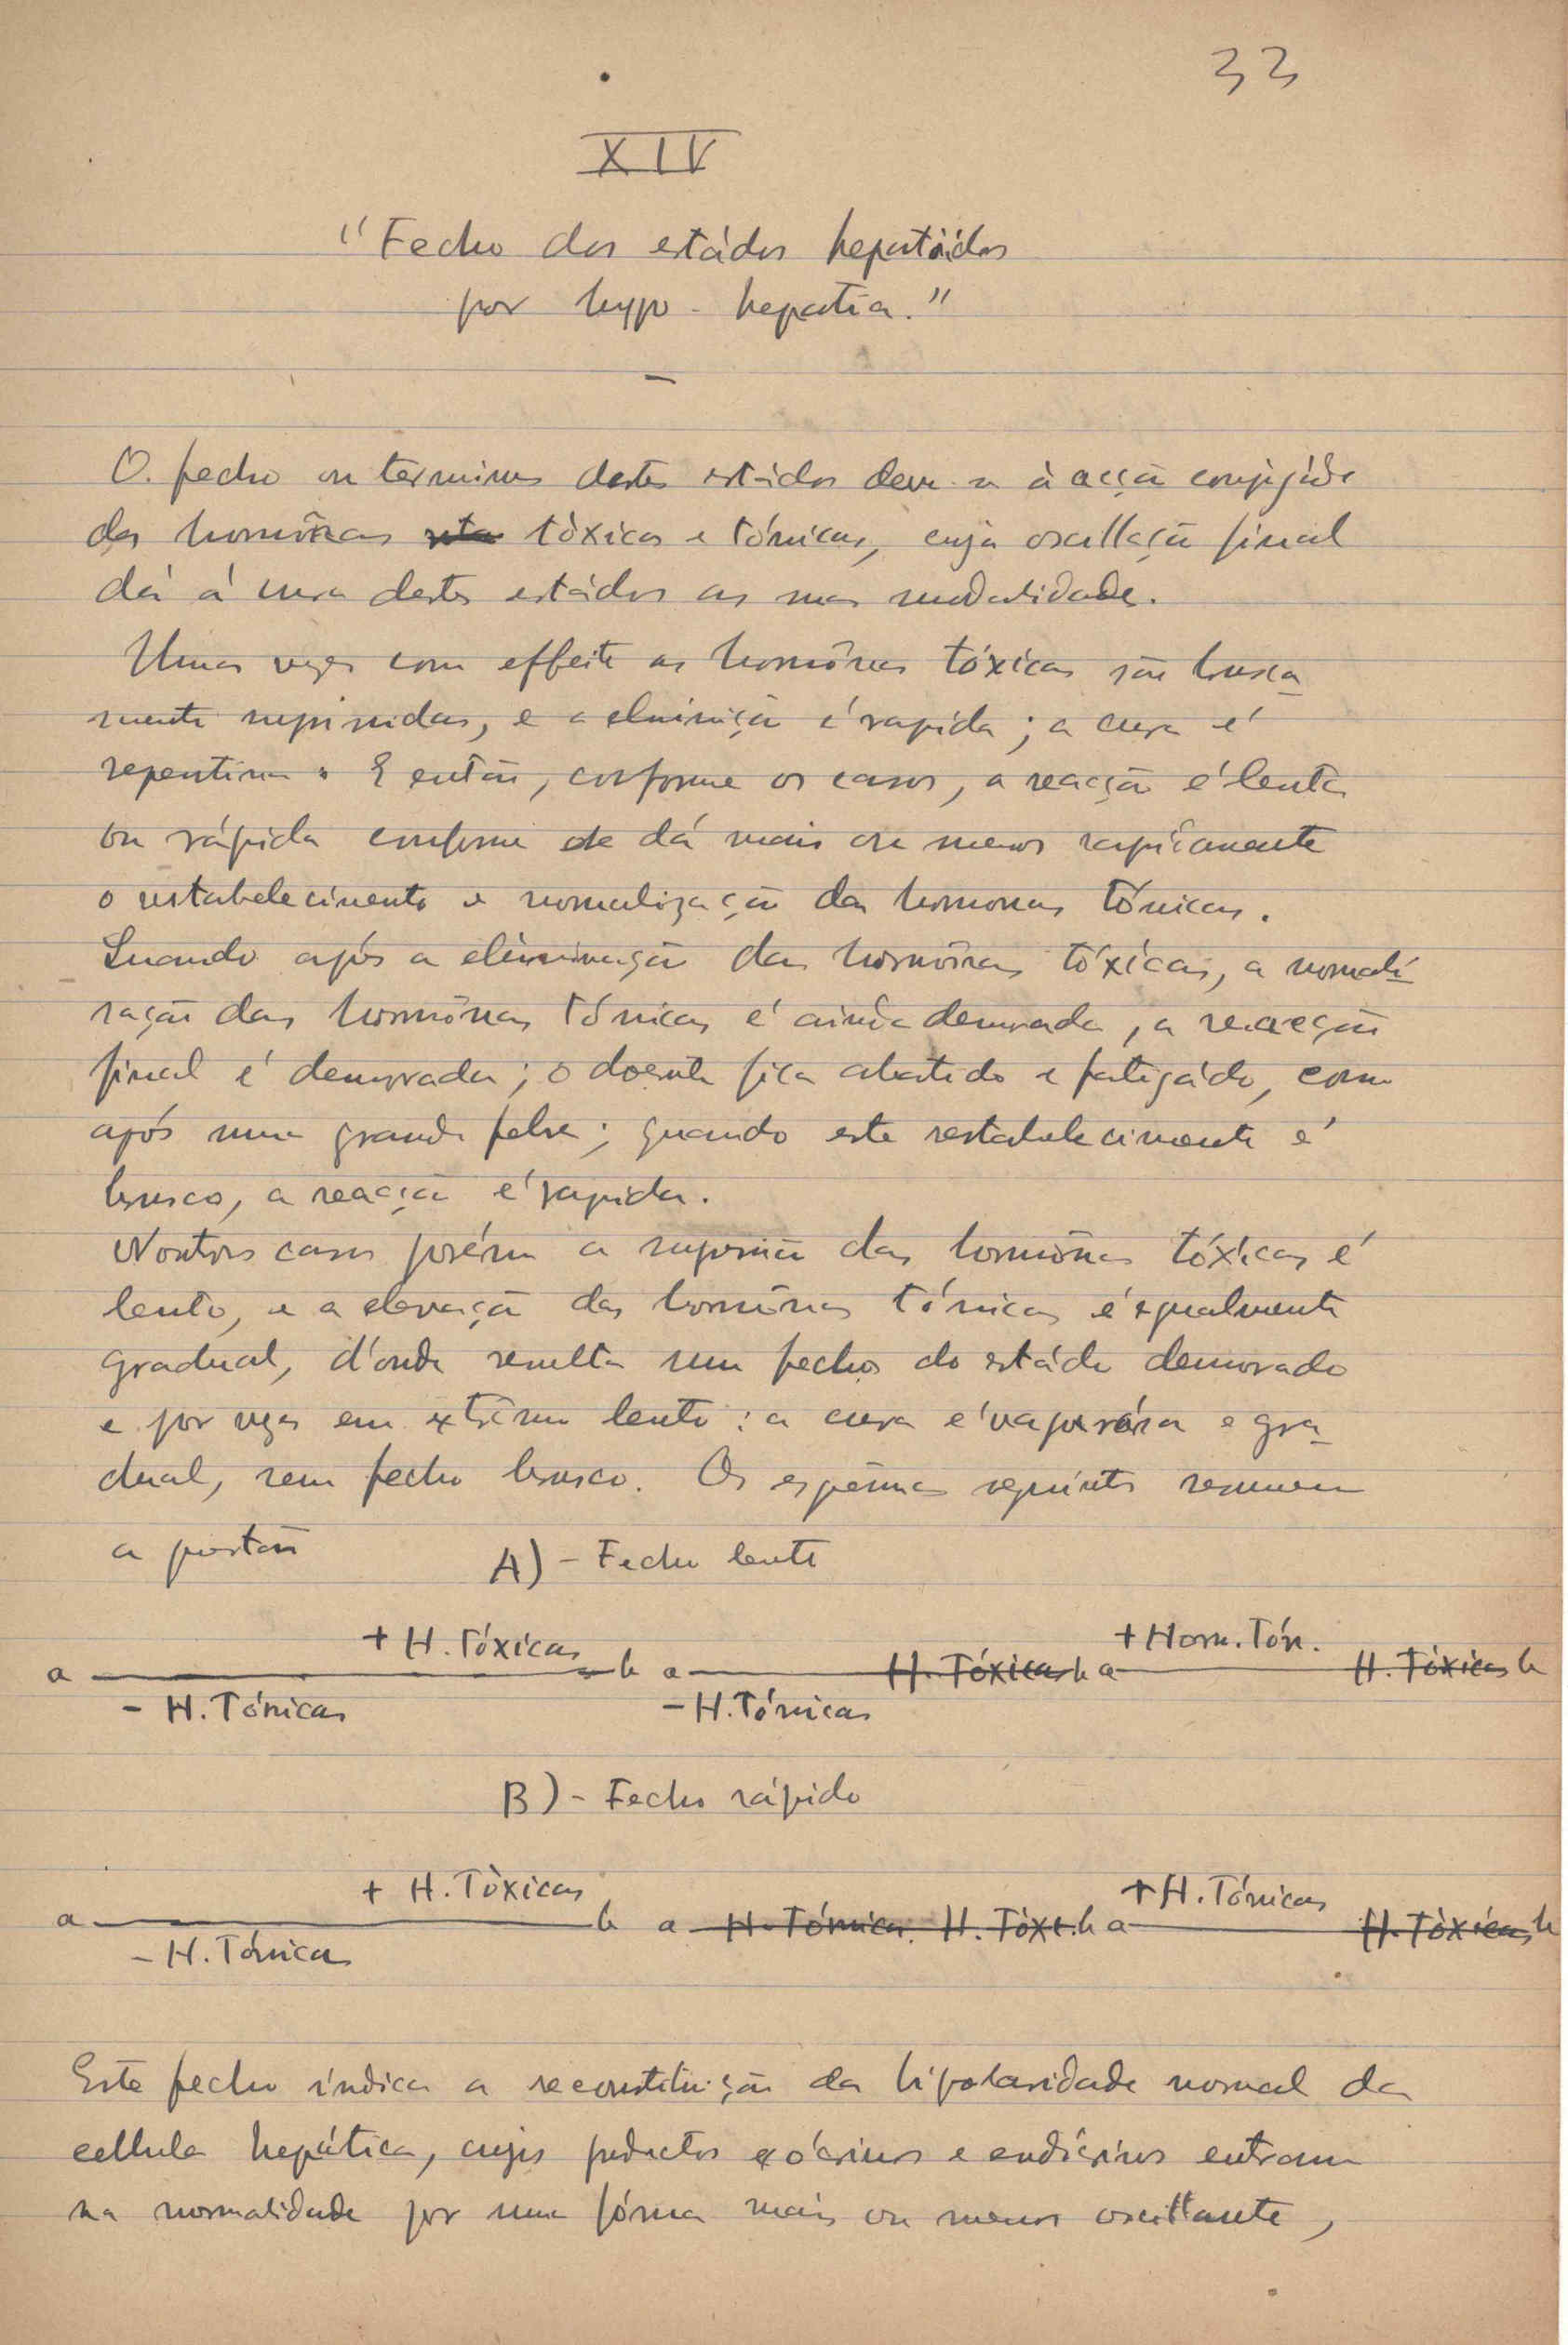 33
XIV
"Fecho dos estádos hepatóidos
por hypo-hepatia."
O fecho ou terminus destes estádos deve-se à acção conjugáda
das hormônas tòxicas e tónicas, cuja oscillação final
dá á cura destes estádos as suas modalidade.
Umas vezes com effeito as hormônas tóxicas são brusca-
mente suprimidas, e a eliminição é rapida; a cura é
repentina. E então, conforme os casos, a reacção é lenta
ou rápida conforme se dá mais ou menos rapidamente
o restabelecimento e normalização das hormonas tónicas.
Quando após a eliminação das hormônas tóxicas, a normali-
sação das hormônas tónicas é ainda demorada, a reacção
final é demorada; o doente fica abatido e fatigádo, como
após uma grande febre; quando este restabelecimento é
brusco, a reacção é rapida.
Noutros casos porém a supressão das hormônas tóxicas é
lento, e a elevação das hormônas tónicas é egualmente
gradual, d'onde resulta um fecho do estádo demorado
e por vezes em extrêmo lento: a cura é vaporósa e gra-
dual, sem fecho brusco. Os esquêmas seguintes resumem
a questão
A) - Fecho lento
+ H. Tóxicas + Horm. Tón.
a b a H. Tóxicas b a H. Tóxicas b
- H. Tónicas - H. Tónicas
B) - Fecho rápido
+ H. Tòxicas + H. Tónicas
a b a H. Tónicas. H. Tòxi. b a H. Tòxicas b
- H. Tónicas
Este fecho índica a reconstituição da bipolaridade normal da
cellula hepática, cujos productos exócrinos e endócrinos entram
na normalidade por uma fórma mais ou menos oscillante,